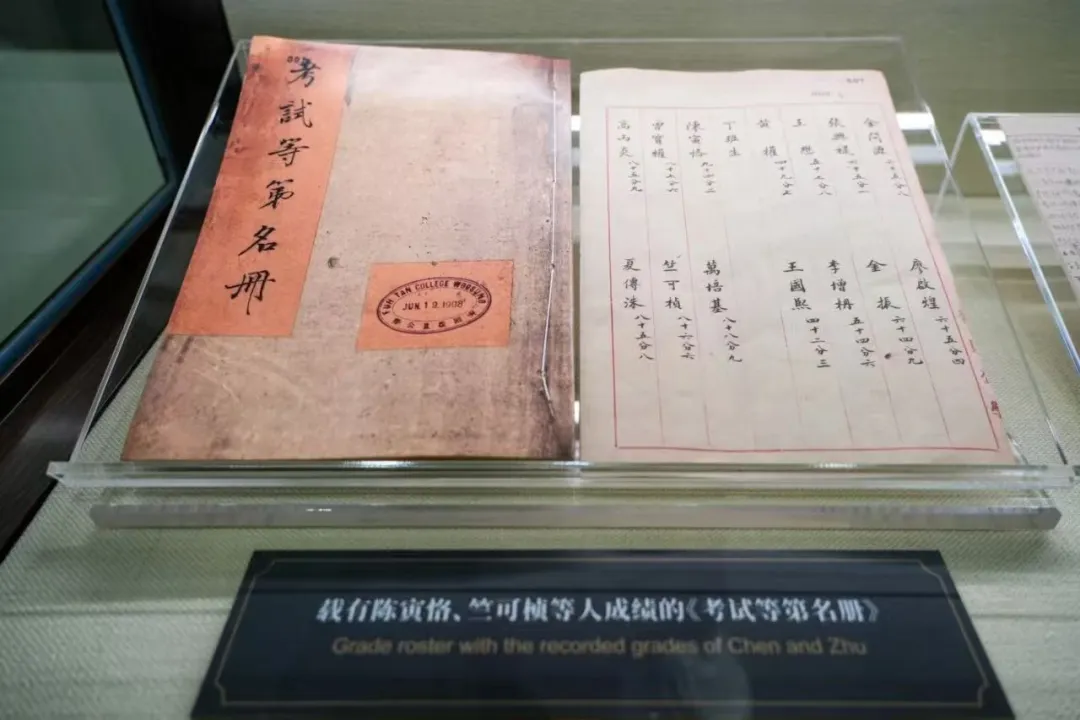 考試等第名冊
FUH TAN COLLEGE WOOSUNG
JUN 19 1908
金問源
廖啟煌 六十五分四
張興 六十五分一
金振 六十四分九
王懋 五十七分八
李增 五十四分六
黃權 四十九分五
王國熙 四十二分三
丁 生
陳寅恪 九十四分二
萬培基 八十八分九
曹寶權 八十七分六
竺可楨 八十六分六
高 炎 八十五分九
夏傳洙 八十五分八
载有陈寅恪、竺可桢等人成绩的《考试等第名册》
Grade roster with the recorded grades of Chen and Zhu